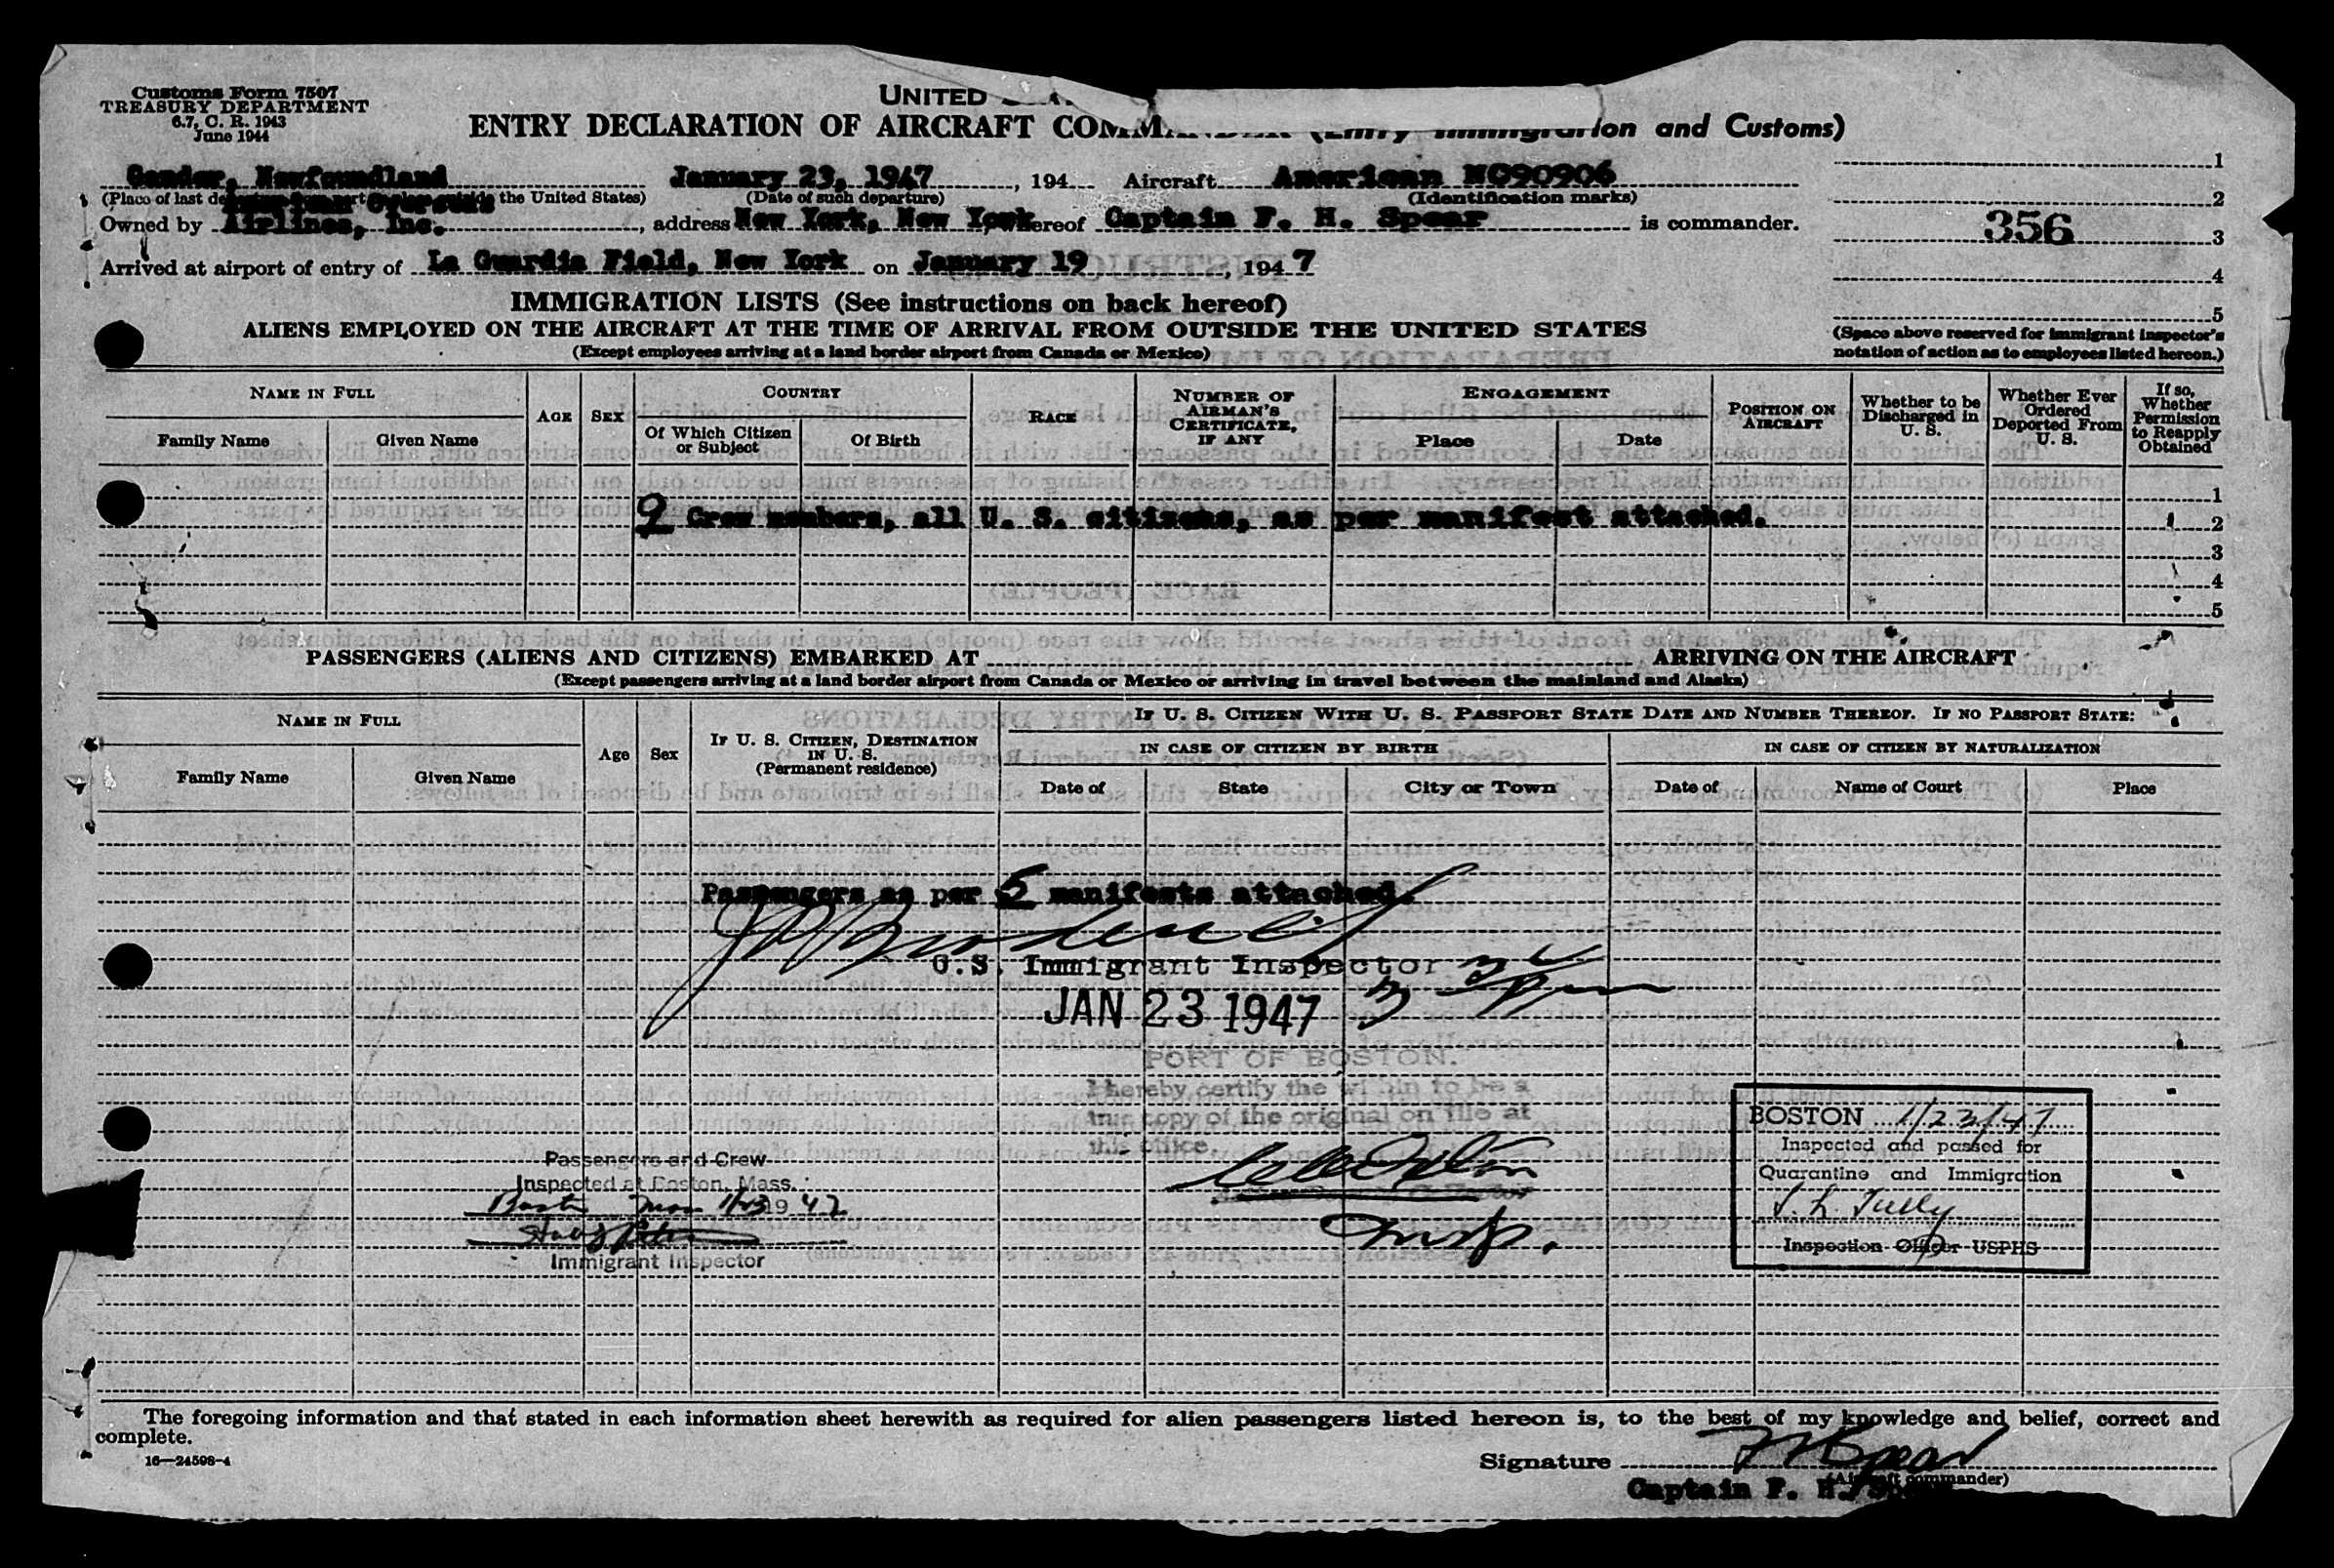 Customs Form 7507
TREASURY DEPARTMENT
6.7, C. R. 1943
June 1944
UNITED
ENTRY DECLARATION OF AIRCRAFT COMMANDER (Entry Immigration and Customs)
Gander, Newfoundland January 23, 1947, 194 Aircraft American NC90906
(Place of last de the United States) (Date of such departure) (Identification marks)
American Overseas
Owned by Airlines, Inc., address New York, New York, whereof Captain F. H. Spear is commander.
Arrived at airport of entry of La Guardia Field, New York on January 19, 1947
1
2
356
3
4
5
(Space above reserved for immigrant inspector's
notation of action as to employees listed hereon.)
IMMIGRATION LISTS (See instructions on back hereof)
ALIENS EMPLOYED ON THE AIRCRAFT AT THE TIME OF ARRIVAL FROM OUTSIDE THE UNITED STATES
(Except employees arriving at a land border airport from Canada or Mexico)
NAME IN FULL
Family Name
Given Name
AGE
SEX
COUNTRY
Of Which Citizen
or Subject
Of Birth
RACE
NUMBER OF
AIRMAN'S
CERTIFICATE,
IF ANY
ENGAGEMENT
Place
Date
POSITION ON
AIRCRAFT
Whether to be
Discharged in
U. S.
Whether Ever
Ordered
Deported From
U. S.
If so,
Whether
Permission
to Reapply
Obtained
1
9 Crew members, all U. S. citizens, as per manifest attached.
2
3
4
5
PASSENGERS (ALIENS AND CITIZENS) EMBARKED AT ARRIVING ON THE AIRCRAFT
(Except passengers arriving at a land border airport from Canada or Mexico or arriving in travel between the mainland and Alaska)
NAME IN FULL
Family Name
Given Name
Age
Sex
IF U. S. CITIZEN, DESTINATION
IN U. S.
(Permanent residence)
IF U. S. CITIZEN WITH U. S. PASSPORT STATE DATE AND NUMBER THEREOF. IF NO PASSPORT STATE:
IN CASE OF CITIZEN BY BIRTH
IN CASE OF CITIZEN BY NATURALIZATION
Date of
State
City or Town
Date of
Name of Court
Place
Passengers as per 5 manifests attached.
U.S. Immigrant Inspector
JAN 23 1947
PORT OF BOSTON.
I hereby certify the within to be a
true copy of the original on file at
this office.
Insp.
Passengers and Crew
Inspected at Boston, Mass.
Boston Mass 1/23 1947
Immigrant Inspector
BOSTON 1/23/47
Inspected and passed for
Quarantine and Immigration
J. L. Tully
Inspection Officer USPHS
The foregoing information and that stated in each information sheet herewith as required for alien passengers listed hereon is, to the best of my knowledge and belief, correct and
complete.
16—24598-4
Signature F H Spear
(Aircraft commander)
Captain F. H. Spear